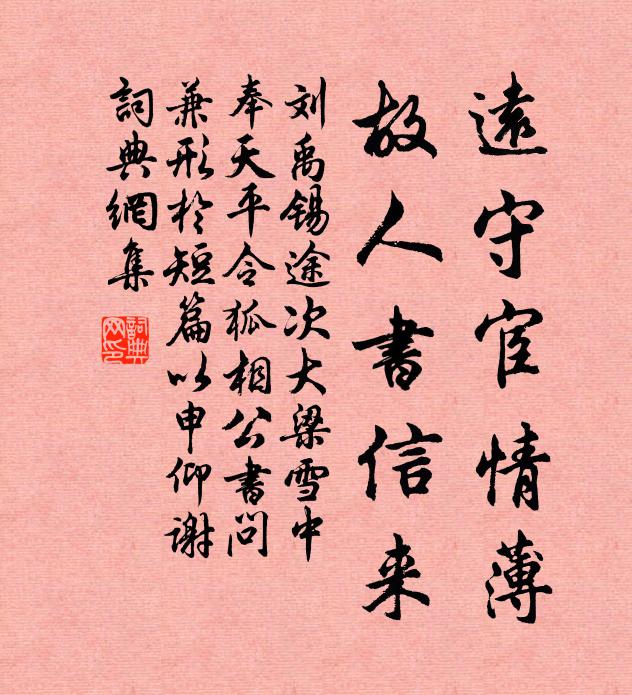 遠守宦情薄
故人書信来
刘禹锡途次大梁雪中
奉天平令狐相公書问
兼形於短篇以申仰谢
詞典網集
詞典网印